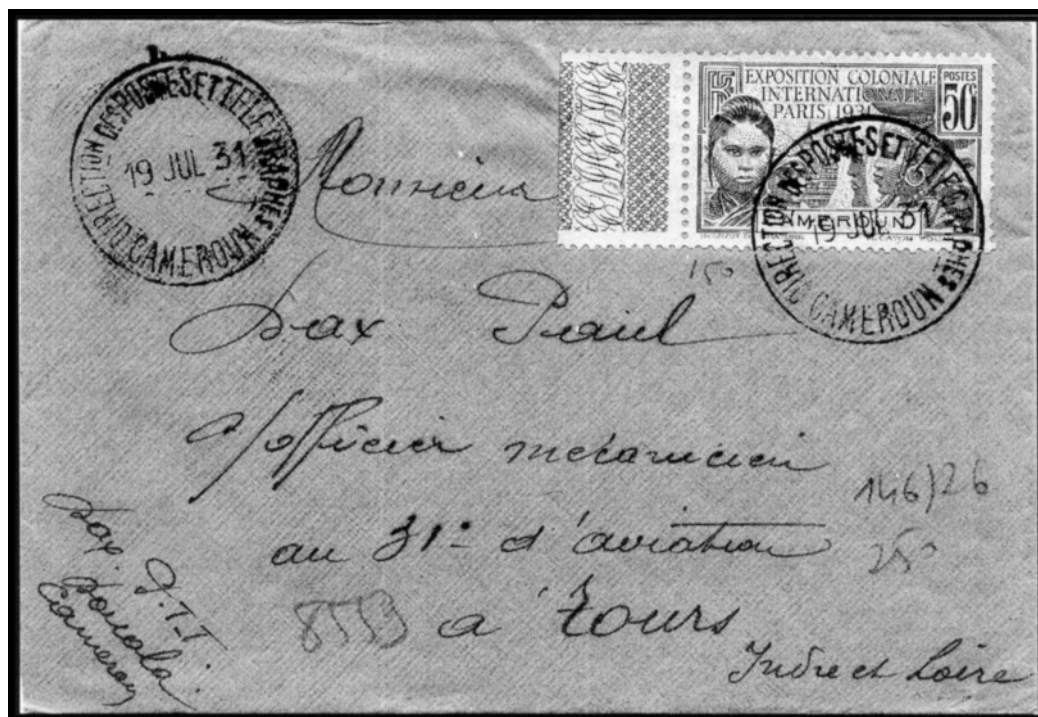 DIRECTION DES POSTES ET TELEGRAPHES
19 JUL 31
CAMEROUN
EXPOSITION COLONIALE
INTERNATIONALE
PARIS 1931
POSTES
50c
CAMEROUN
DIRECTION DES POSTES ET TELEGRAPHES
19 JUL 31
CAMEROUN
Monsieur
150
Dax Paul
s/officier mécanicien
146)26
au 31e d'aviation
250
à Tours
Indre et Loire
Dax P.T.T
Douala
Cameroun